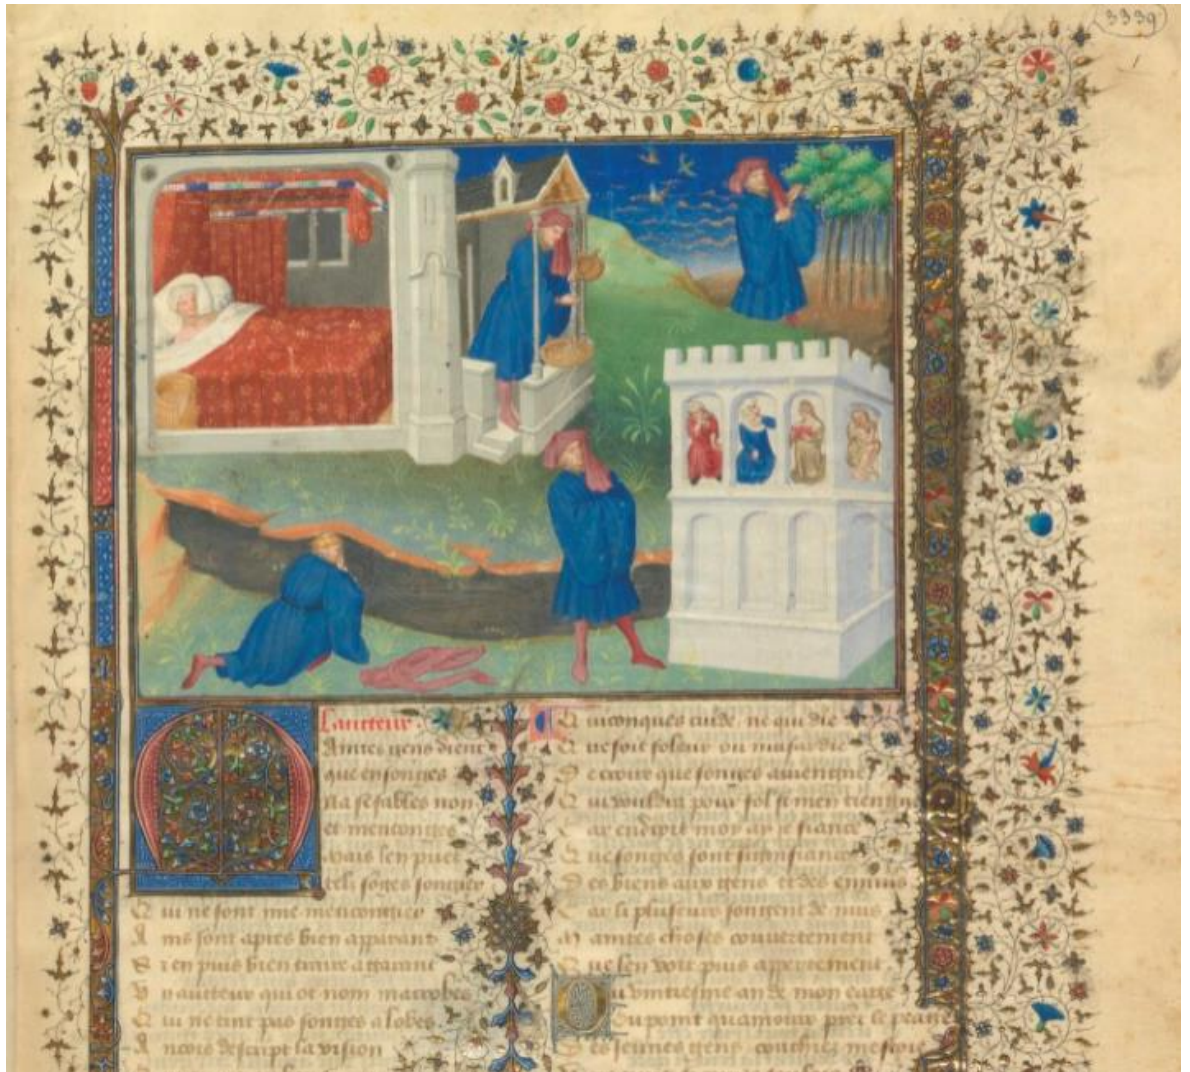 3339
Lauteur.
Maintes gens dient
que en songes
Na se fables non
et menconges
mais len puet
telz soges songier
Qui ne sont mie mencongier
Ains sont apres bien apparant
Si en puis bien traire a garant
Un aucteur qui ot nom macrobes
Qui ne tint pas songes a lobes
Ancois descript la vision
Quiconques cuide ne qui die
Que soit folour ou musardie
De croire que songes aviengne
Qui vouldra pour fol se men tiengne
Car endroit moy ay je fiance
Que songes sont signifiance
Des biens aux gens et des ennuis
Car li pluseurs songent de nuis
Maintes choses couvertement
Que len voit puis appertement
Ou vintiesme an de mon eage
Ou point quamours prent le peage
Des jeunes gens couchiez mestoie